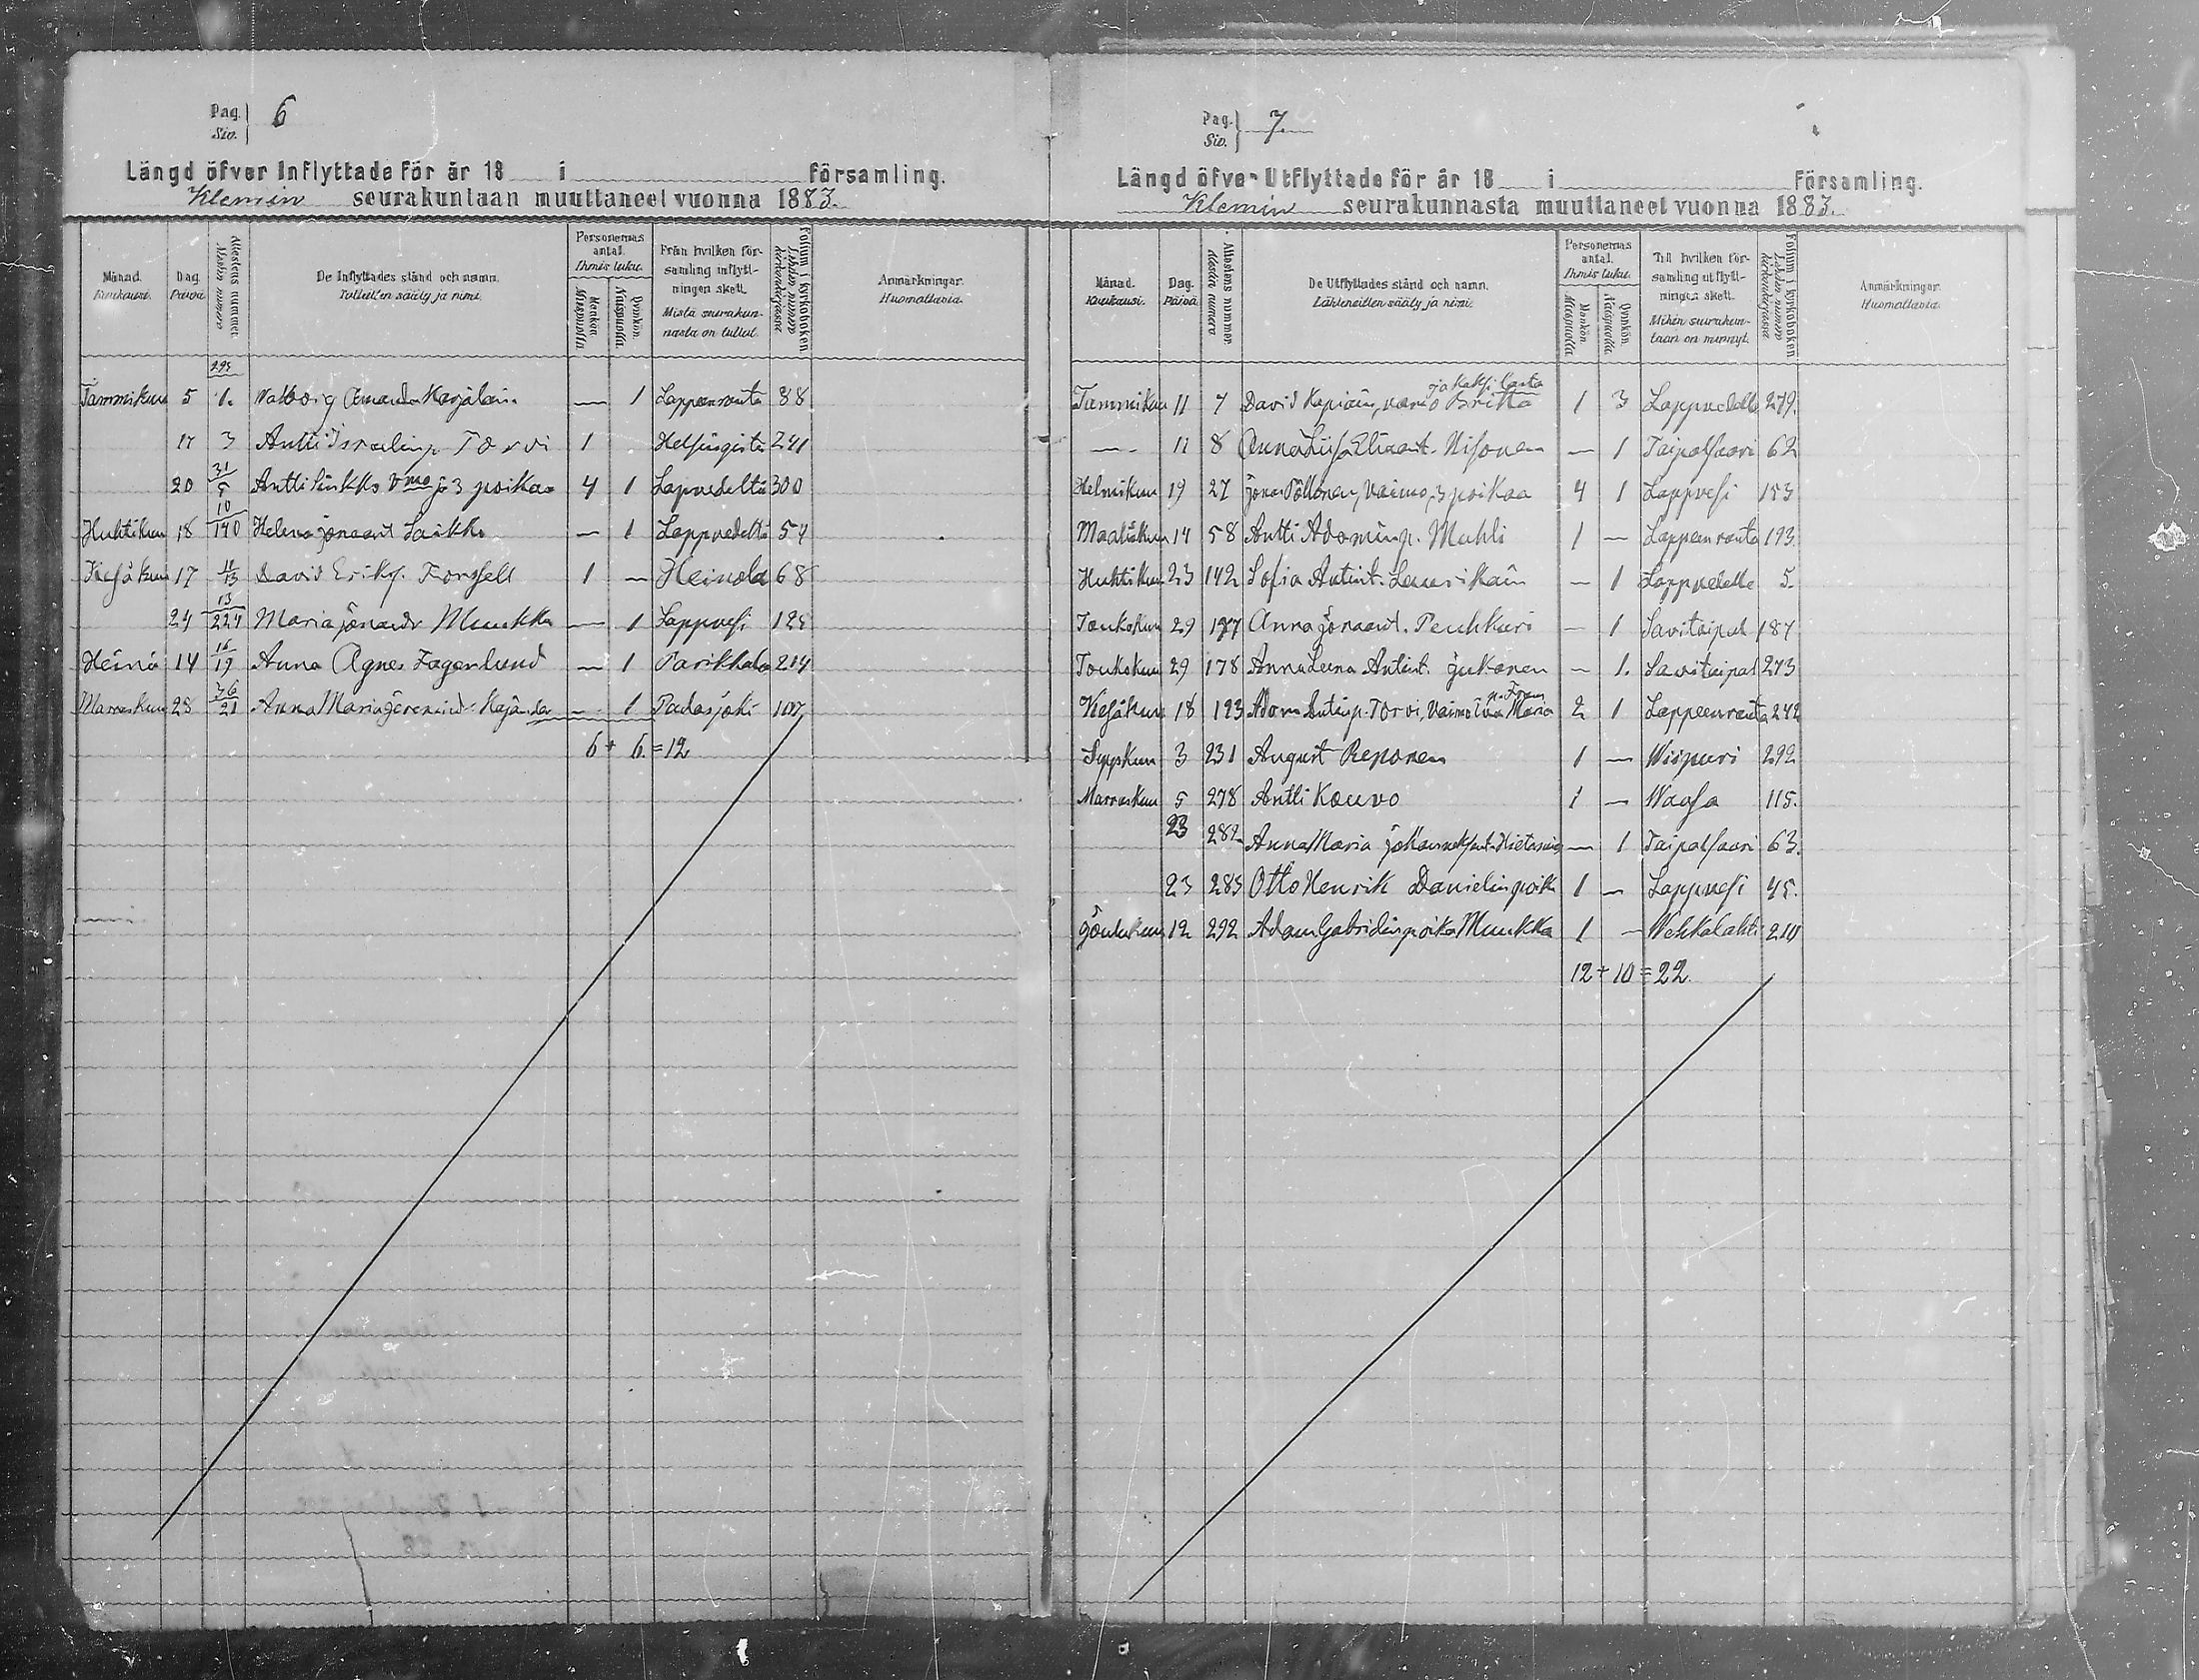 Pag. Sio. 6
Längd öfver Inflyttade för år 18 i församling.
Klemin seurakuntaan muuttaneet vuonna 1883.
Månad. Kuukausi. Dag. Päivä. Attestens nummer Atestin numero De Inflyttades stånd och namn. Tulleitten sääty ja nimi. Personernas antal. Ihmis luku. Mankön. Miespuolia Qvinkön. Naispuolia. Från hvilken församling inflyttningen skett. Mistä seurakunnasta on tullut. Folium i kyrkoboken Lehden numero kirkonkirjassa Anmärkningar. Huomattavia.
295
Tammikuu 5 1. Amanda Karjalain. — 1 Lappeenranta 88
17 3 Antti Israelinp. Torvi 1 Helsingistä 241
20 31/5 Antti Linkko Vmo ja 3 poikaa 4 1 Lapvedeltä 300
Huhtikuu 18 10/140 Helena Jonaant Saikko — 1 Lappvedeltä 54
Kesäkuu 17 11/13 David Eriksp. Forssell 1 — Heinola 68
24 13/224 Maria Jonaadr Muukka — 1 Lappvesi 125
Heinä 14 16/19 Anna Agnes Fagerlund — 1 Parikkala 214
Marraskuu 28 36/21 Anna Maria Kajander — 1 Padasjoki 107
6 + 6 = 12
Pag. Sio. 7.
Längd öfver Utflyttade för år 18 i Församling.
Klemin seurakunnasta muuttaneet vuonna 1883.
Månad. Kuukausi. Dag. Päivä. Attestens nummer Atestin numero De Utflyttades stånd och namn. Lähteneitten sääty ja nimi. Personernas antal. Ihmis luku. Mankön Miespuolia Qvinkön. Naispuolia Till hvilken församling utflyttningen skett. Mihin seurakuntaan on mennyt. Folium i kyrkoboken Lehden numero kirkonkirjassa Anmärkningar. Huomattavia.
ja kaksi lasta
Tammikuu 11 7 David Kapiain, vaimo Britta 1 3 Lappvedelle 279.
— 11 8 Anna Liisa Eliaant. Nisonen — 1 Taipalsaari 62
Helmikuu 19 27 Jona Pöllönen, Vaimo, 3 poikaa 4 1 Lappvesi 153
Maaliskuu 14 58 Antti Adaminp. Muhli 1 — Lappeenranta 193.
Huhtikuu 23 142 Sofia Antint. Laurikain — 1 Lappvedelle 5.
Toukokuu 29 177 Anna Jonaant. Peuhkuri — 1 Savitaipal 187
Toukokuu 29 178 Anna Leena Antint. Jukonen — 1. Savitaipal 273
Kesäkuu 18 193 Adam Antinp. Torvi, Vaimo Eva Maria 2 1 Lappeenranta 242
Syyskuu 3 231 August Reponen 1 — Wiipuri 292
Marraskuu 5 278 Antti Kouvo 1 — Waasa 115.
23 282 Anna Maria Hietanen — 1 Taipalsaari 63.
23 283 Otto Henrik Danielin poika 1 — Lappvesi 45.
Joulukuu 12 292 Adam Gabrielinpoika Muukka 1 — Wehkalahti 210
12 + 10 = 22.